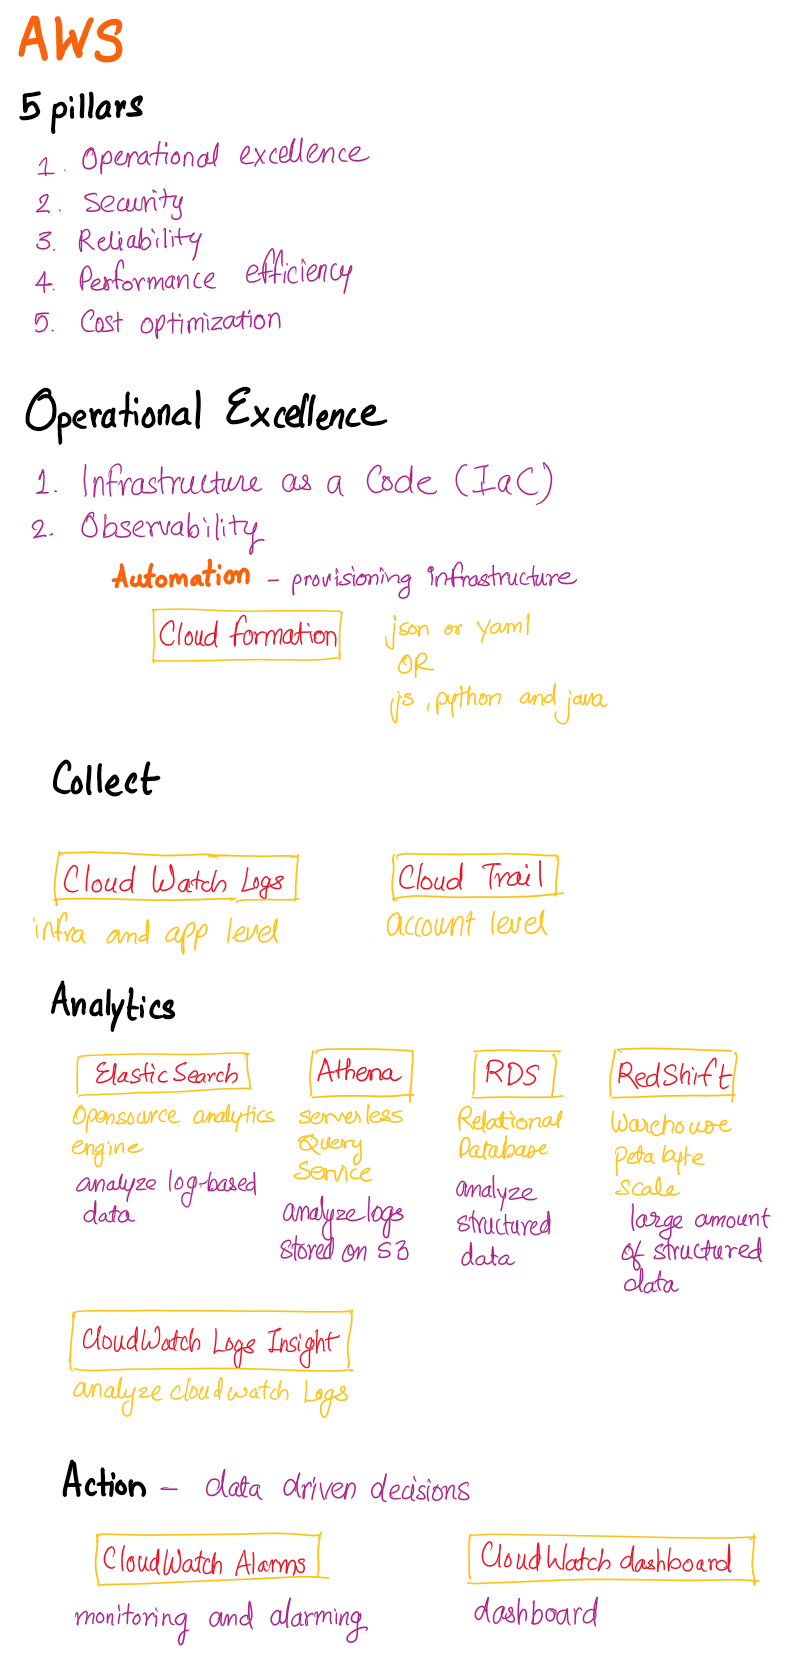 AWS
5 pillars
1. Operational excellence
2. Security
3. Reliability
4. Performance efficiency
5. Cost optimization
Operational Excellence
1. Infrastructure as a Code (IaC)
2. Observability
Automation - provisioning infrastructure
Cloud formation
json or yaml
OR
js, python and java
Collect
Cloud Watch Logs
infra and app level
Cloud Trail
account level
Analytics
ElasticSearch
Opensource analytics
engine
analyze log-based
data
Athena
serverless
Query
Service
analyze logs
stored on S3
RDS
Relational
Database
analyze
structured
data
RedShift
Warehouse
Peta byte
scale
large amount
of structured
data
CloudWatch Logs Insight
analyze cloudwatch Logs
Action - data driven decisions
CloudWatch Alarms
monitoring and alarming
CloudWatch dashboard
dashboard